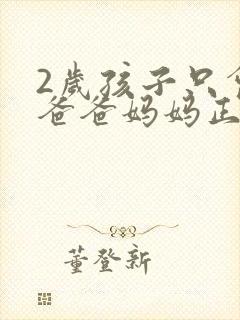 2歲孩子只
爸爸妈妈正
董登新